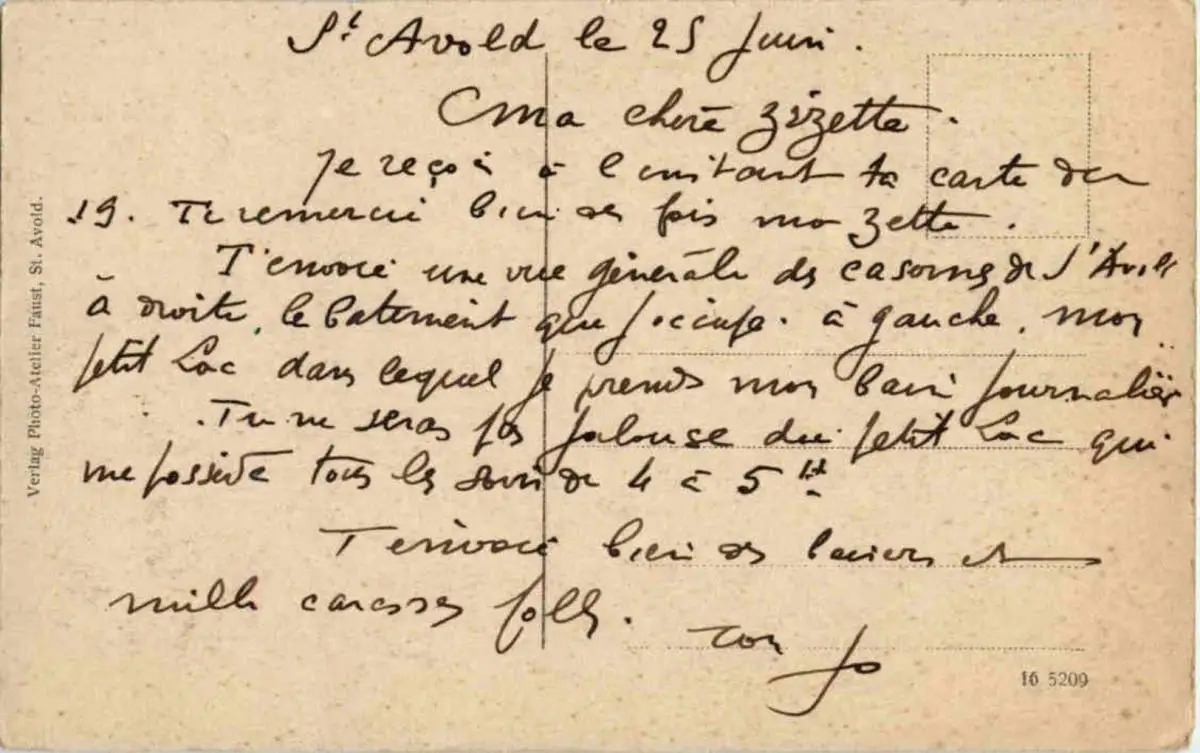 St Avold le 25 Juin.
Ma chère Zizette.
Je reçoi à l'instant ta carte du
19. Te remercie bien des fois ma Zette.
T'envoie une vue générale des casernes de St Avold
à droite, le batement que j'occupe. à gauche, mon
petit Lac dans lequel je prends mon bain journalier
. Tu ne seras pas jalouse du petit Lac qui
me possède tous les soirs de 4 à 5 H
T'envoie bien des baisers et
mille caresses folles.
Ton Jo
Verlag Photo-Atelier Faust, St. Avold.
16 5209